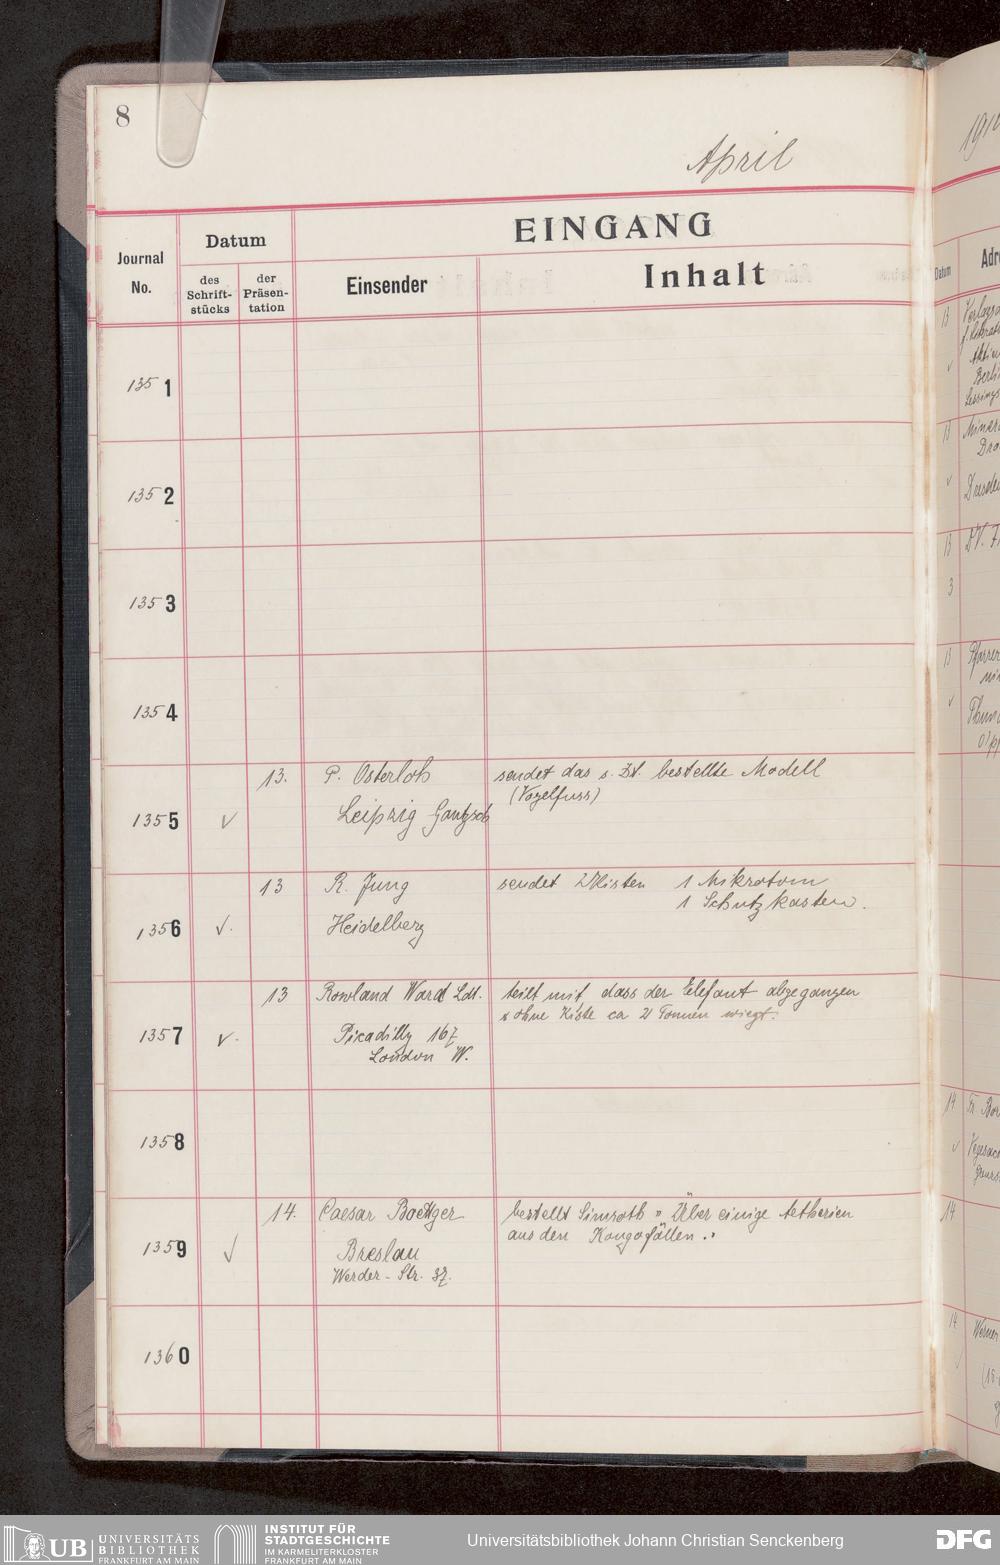 8
April
EINGANG
Journal No.
Datum
des Schrift-stücks
der Präsen-tation
Einsender
Inhalt
1351
1352
1353
1354
1355 ✓ 13. P. Osterloh sendet das s. Zt. bestellte Modell
Leipzig Gautzsch (Vogelfuss)
1356 ✓. 13 R. Jung sendet 2 Kisten 1 Mikrotom
Heidelberg 1 Schutzkasten.
1357 ✓. 13 Rowland Ward Ldt. teilt mit dass der Elefant abgegangen
Picadilly 167 ohne Kiste ca 2 Tonnen wiegt.
London W.
1358
1359 ✓ 14. Caesar Boettger bestellt Simroth „ Über einige Aetherien
Breslau aus den Kongofällen."
Werder-Str. 37.
1360
191
Datum
Adre
13
13
13
3
13
14
14
14
UB UNIVERSITÄTS
BIBLIOTHEK
FRANKFURT AM MAIN
INSTITUT FÜR
STADTGESCHICHTE
IM KARMELITERKLOSTER
FRANKFURT AM MAIN
Universitätsbibliothek Johann Christian Senckenberg
DFG